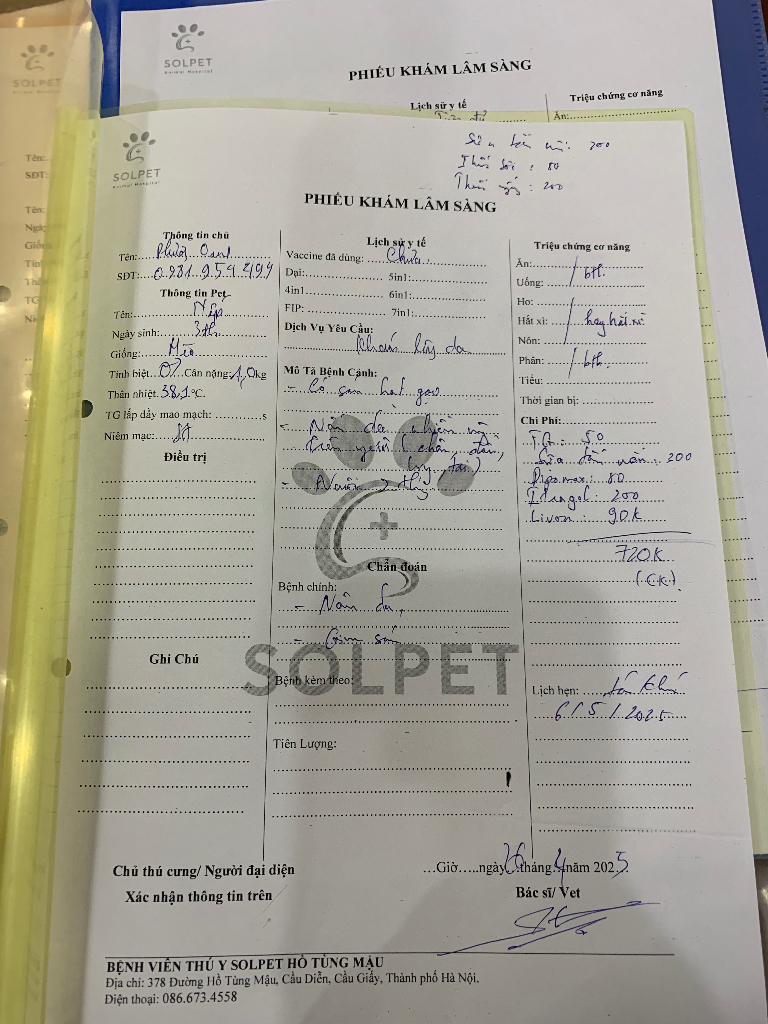 SOLPET
Animal Hospital
PHIẾU KHÁM LÂM SÀNG
Lịch sử y tế
Triệu chứng cơ năng
Ăn:
SOLPET
Tên:
SĐT:
Tên:
Giống:
TG
SOLPET
Animal Hospital
Sữa tắm nấm: 200
: 80
Thuốc : 200
PHIẾU KHÁM LÂM SÀNG
Thông tin chủ
Tên:
SĐT: 0981 954 494
Thông tin Pet
Tên: Nếp
Ngày sinh: 3th
Giống: Mèo
Tính biệt Cân nặng: 1,0kg
Thân nhiệt 38,1°C.
TG lấp đầy mao mạch: s
Niêm mạc:
Điều trị
Ghi Chú
Lịch sử y tế
Vaccine đã dùng: Chưa
Dại: 5in1:
4in1 6in1:
FIP: 7in1:
Dịch Vụ Yêu Cầu:
Khám da
Mô Tả Bệnh Cảnh:
- Có sán hạt gạo
- Nấm da nhiều
trên người (chân, đầu,
tai)
- Nuôi 2
Chẩn đoán
Bệnh chính:
- Nấm da,
- Giun sán
SOLPET
Bệnh kèm theo:
Tiên Lượng:
Triệu chứng cơ năng
Ăn:
Uống: bth
Ho:
Hắt xì: hay hắt xì
Nôn:
Phân: bth
Tiểu:
Thời gian bị:
Chi Phí:
: 50
Sữa tắm nấm: 200
: 80
: 200
: 90K
720K
(CK)
Lịch hẹn: tái khám
6/5/2025
Chủ thú cưng/ Người đại diện
Xác nhận thông tin trên
…Giờ…..ngày 26 tháng 4 năm 2025
Bác sĩ/ Vet
BỆNH VIỆN THÚ Y SOLPET HỒ TÙNG MẬU
Địa chỉ: 378 Đường Hồ Tùng Mậu, Cầu Diễn, Cầu Giấy, Thành phố Hà Nội.
Điện thoại: 086.673.4558